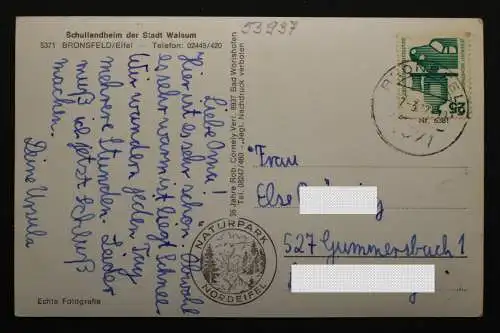 Schullandheim der Stadt Walsum
5371 BRONSFELD/Eifel Telefon: 02445/420
53937
Liebe Oma!
Hier ist es sehr schön. Obwohl
es sehr warm ist liegt Schnee.
Wir wandern jeden Tag
mehrere Stunden. Leider
muß ich jetzt schluß
machen.
Deine Ursula
Echte Fotografie
35 Jahre Rob. Cornely Verl. 8937 Bad Wörishofen
Tel. 08247/460 - Jegl. Nachdruck verboten
Nr. 6381
NATURPARK
NORDEIFEL
25
Frau
Else
527 Gummersbach 1